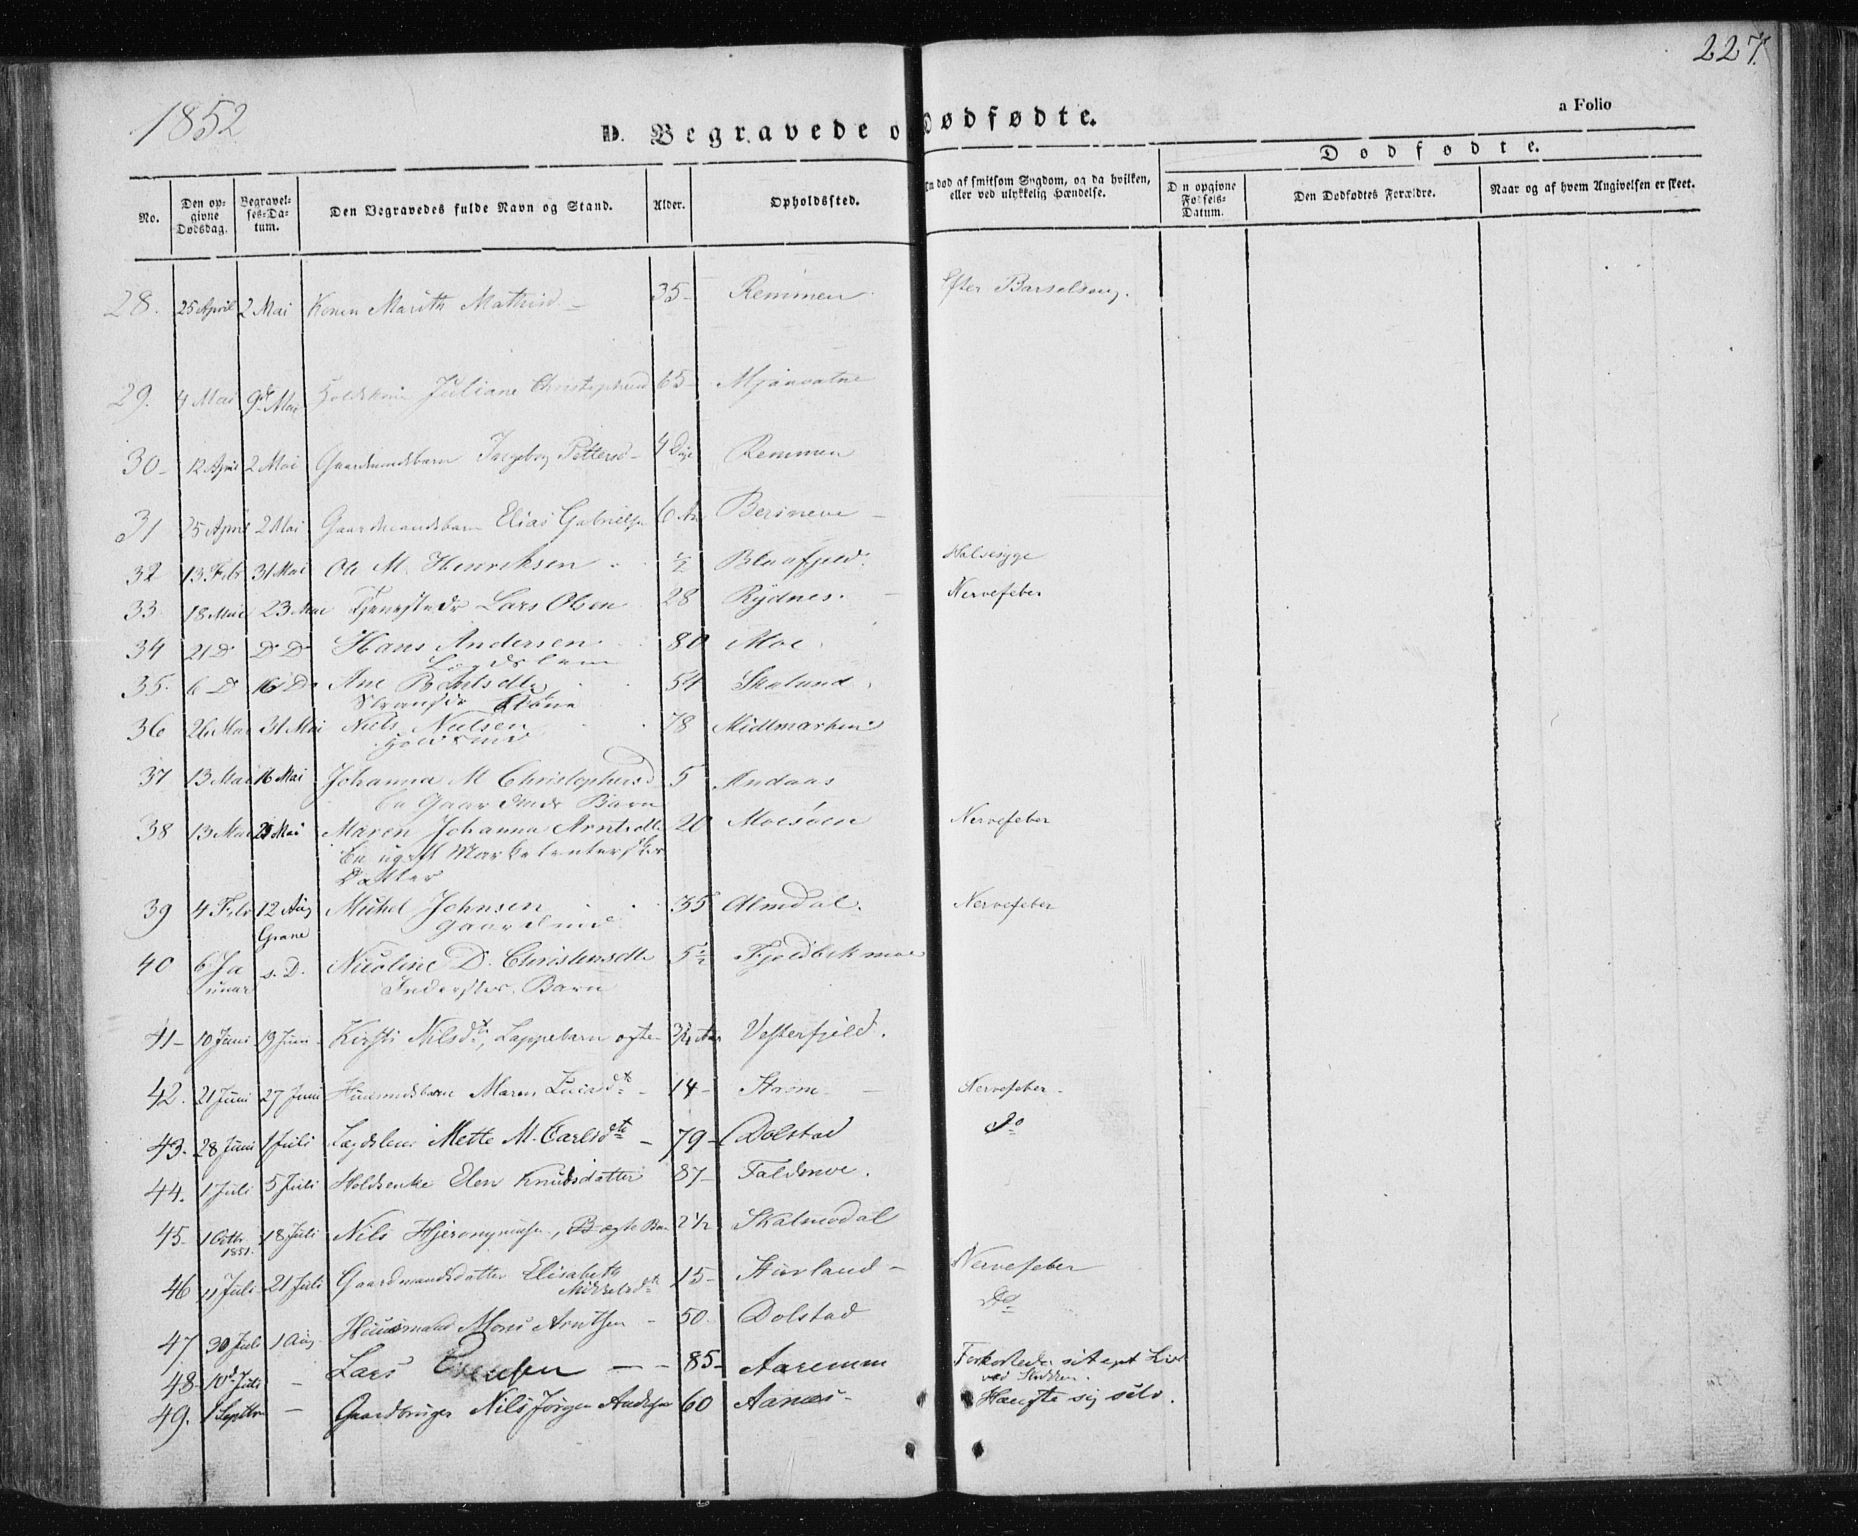 227.
1852
a Folio
D. Begravede o Dødfødte.
Dødfødte.
No. Den opgivne Dødsdag. Begravelses-Datum. Den Begravedes fulde Navn og Stand. Alder. Opholdssted. død af smitsom Sygdom, og da hvilken, eller ved ulykkelig Hændelse. D n opgivne Fødsels-Datum. Den Dødfødtes Forældre. Naar og af hvem Angivelsen er skeet.
28. 25 April 2 Mai Konen Marith Mathisd 35 Remmen Efter Barselseng.
29. 4 Mai 9de Mai Juliane Christophersd 65 Mjaavatne
30 12 April 2 Mai Gaardmandsbarn Ingeborg Pettersd 4 Dage Remmen
31 25 April 2 Mai Gaardmandsbarn Elias Gabrielsen 6 Aar
32 13 Febr 31 Mai Ole M. Henriksen ½ Blaafjeld. Halssyge
33 18 Mai 23 Mai Lars Olsen 28 Rydnes. Nervefeber
34 21 D D D Hans Andersen 80 Moe
Lægdslem
35. 6 D 16 D Ane 54 Skalund
36 26 Mai 31 Mai Niels Nielsen 78 Midtmarken
37 13 Mai 16 Mai Johanna M Christophersd 5 Andaas
En Gaardmds Barn
38 13 Mai Mai Maren Johanna Arntsdtr 20 Moesøen Nervefeber
En ugift
Datter
39 4 Febr 12 Aug Michel Johnsen 35 Almdal. Nervefeber
Grane Gaardmd
40 6 Ja s. D. Nicoline D. Christensdtr 5½ Fjeldbekmoe
nuar Inderstes Barn
41 10 Juni 19 Juni Kirsti Nilsdt, Lappebarn Vesterfjeld.
42. 21 Juni 27 Juni Huusmdsbarn Maren 14 Strøm Nervefeber
43. 28 Juni 1 Juli Lægdslem Mette M. Carlsdtr 79 Dolstad do
44. 1 Juli 5 Juli Holdsenke Elen Knudsdatter 87 Faldmoe.
45. 1 Octbr 18 Juli Nils Hjeronymusen, 2½ Skalmodal
1851.
46 11 Juli 21 Juli Gaardmandsdatter Elisabeth 15 Stuvland Nervefeber
Mikkelsdtr Do
47 30 Juli 1 Aug. Huusmand Mons Arntsen 50 Dolstad
48 10de Juli Lars 85 Aaremma Forkortede sit eget Liv
49. 1 Septbr Gaardbruger Nils Jørgen Andersen 60 Aanæs Hængte sig selv.